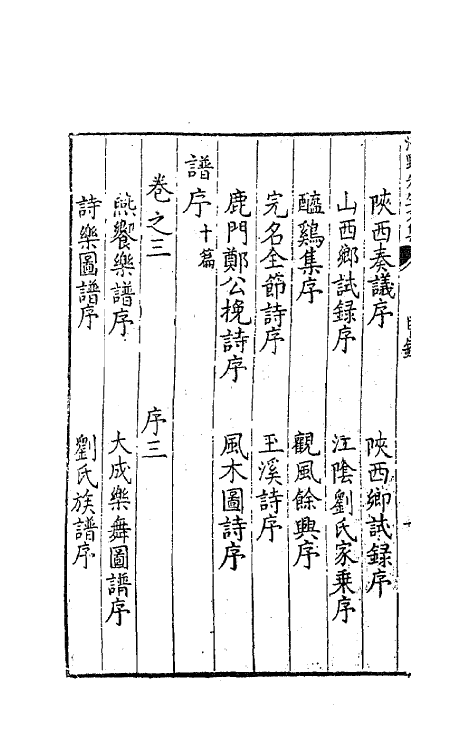 陝西奏議序　陝西鄉試録序
山西鄉試録序　江陰劉氏家乗序
醯鷄集序　觀風餘興序
完名全節詩序　玉溪詩序
鹿門鄭公挽詩序　風木圖詩序
譜序十篇
卷之三　序三
燕饗樂譜序　大成樂舞圖譜序
詩樂圖譜序　劉氏族譜序